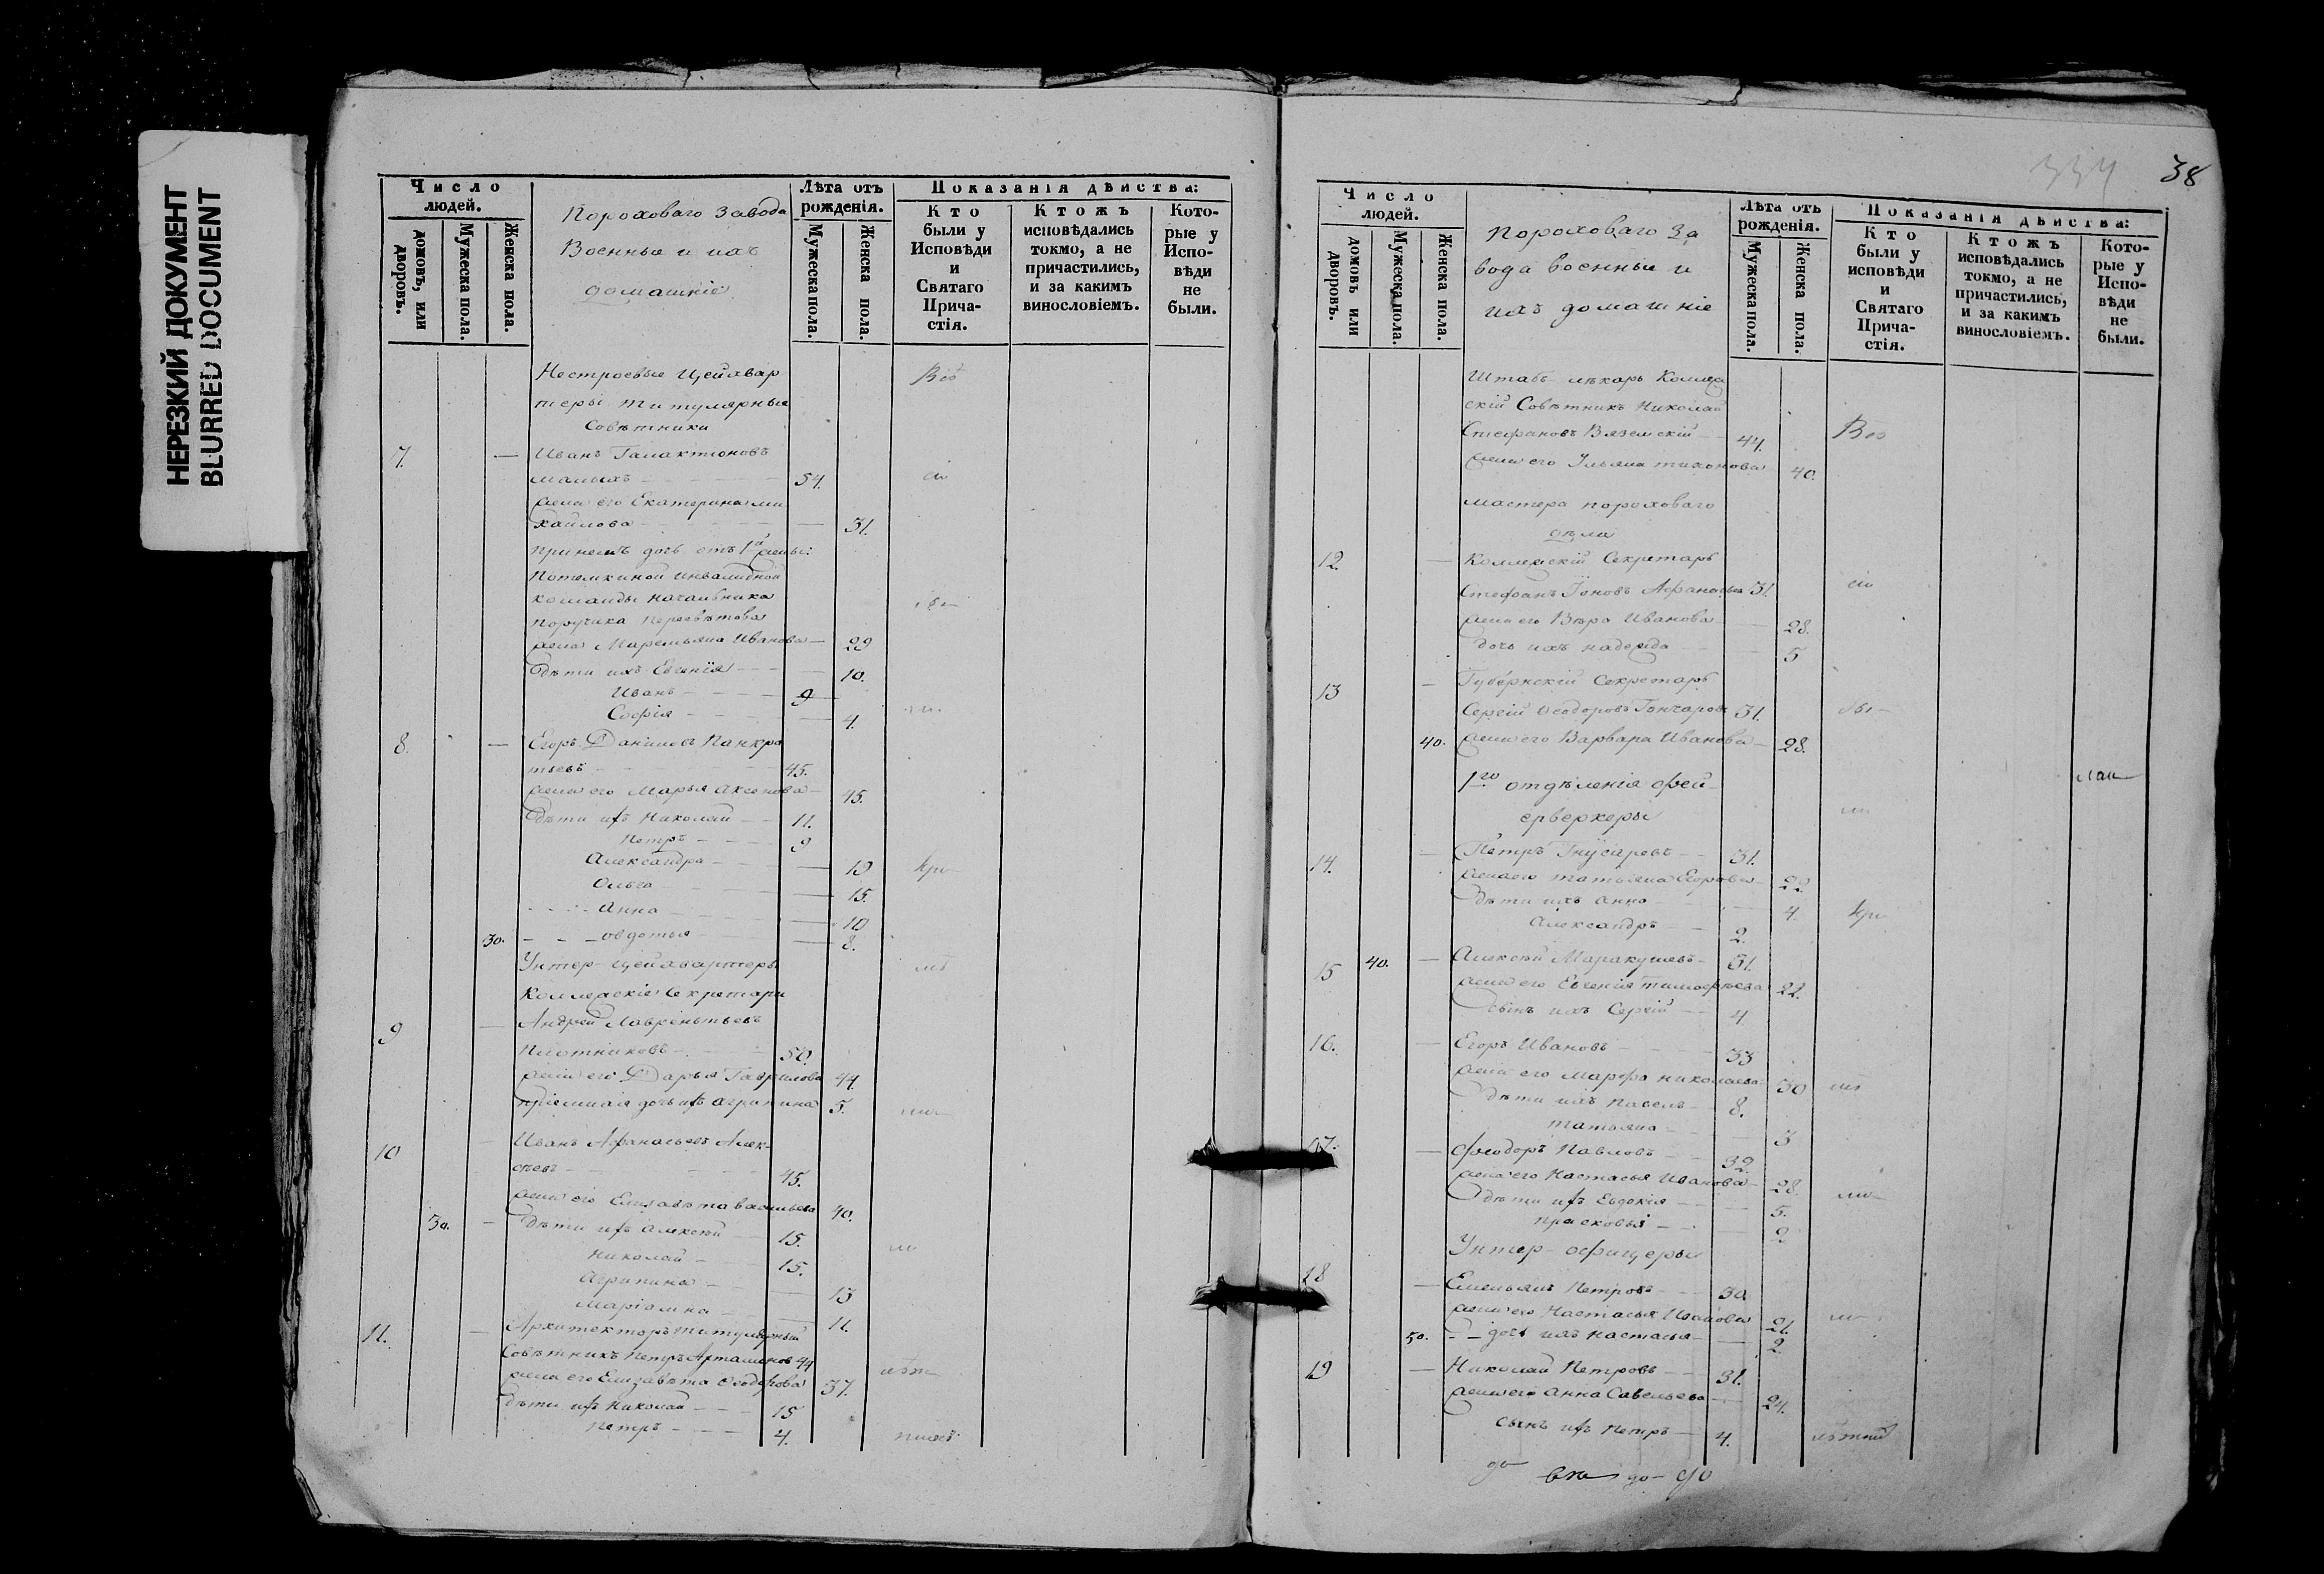 НЕРЕЗКИЙ ДОКУМЕНТ
BLURRED DOCUMENT
Число людей.
домовъ, или дворовъ.
Мужеска пола.
Женска пола.
Пороховаго Завода
Военные и ихъ
домашніе
Лѣта отъ рожденія.
Мужеска пола.
Женска пола.
Показанія дѣйства:
Кто были у Исповѣди и Святаго Прича-стія.
Ктожъ исповѣдались токмо, а не причастились, и за какимъ винословіемъ.
Кото-рые у Испо-вѣди не были.
Нестроевые Цейхвар
теры Титулярные
Совѣтники
7. — Иванъ Галактіоновъ
Малыхъ 54.
жена его Екатерина Ми
хайлова — 31.
дочь отъ 1й жены:
инвалидной
команды начальника
Поручика
жена Иванова — 29
дѣти ихъ Евгенія — 10.
Иванъ 9
Софія — 4.
8. — Егоръ Даниловъ Панкра
тьевъ 45.
жена его Марья Аксенова — 45.
дѣти ихъ Николай 11.
Петръ 9
Александра — 19
Ольга — 15.
Анна — 10
30. Овдотья — 8.
Унтер-Цейхвартеры
Коллежскіе Секретари
9 — Андрей Лаврентьевъ
Плотниковъ 50.
жена его Дарья Гаврилова 44.
пріемная дочь ихъ Агрипина 5.
10 — Иванъ Афанасьевъ Алек-
сѣевъ 45.
жена его Елизавета Васильева 40.
50. — дѣти ихъ Алексѣй 15.
Николай 15.
Агрипина — 13
Маріамна — 11.
11. — Архитекторъ Титулярный
Совѣтникъ Петръ Артамоновъ 44
жена его Елизавѣта Ѳеодорова 37.
дѣти ихъ Николай 15
Петръ 4.
334 38
Число людей.
домовъ или дворовъ.
Мужеска пола.
Женска пола.
Пороховаго За
вода военные и
ихъ домашніе
Лѣта отъ рожденія.
Мужеска пола.
Женска пола.
Показанія дѣйства:
Кто были у исповѣди и Святаго Прича-стія.
Ктожъ исповѣдались токмо, а не причастились, и за какимъ винословіемъ.
Кото-рые у Испо-вѣди не были.
Штабъ-лѣкарь Коллеж
скій Совѣтникъ Николай
Стефановъ Вяземскій 44.
жена его Ульяна Тихонова 40.
Мастера пороховаго
дѣла
12. — Коллежскій Секретарь
Стефанъ Іоновъ Афанасьев 31.
жена его Вѣра Иванова — 28.
дочь ихъ Надежда — 5
13 — Губернскій Секретарь
Сергій Ѳеодоровъ Гончаровъ 31.
40. жена его Варвара Иванова — 28.
1го отдѣленія фей-
ерверкеры
14. — Петръ 31.
жена его Татьяна Егорова — 22
дѣти ихъ Анна — 4.
Александръ 2.
15 40. — Алексѣй Маракушевъ 31.
жена его Евгенія Тимофѣева 22.
сынъ ихъ Сергій 4
16. — Егоръ Ивановъ 33
жена его Марфа Николаева 30
дѣти ихъ Павелъ 8.
Татьяна — 3
17. — Феодоръ Павловъ 32.
жена его Настасья Иванова — 28.
дѣти ихъ Евдокія — 5.
Прасковья — 2
Унтер-офицеры
18 — Емельянъ Петровъ 30
жена его Настасья Иванова 21.
50. дочь ихъ Настасья — 2.
19 — Николай Петровъ 31.
жена его Анна Савельева — 24.
сынъ ихъ Петръ 4.